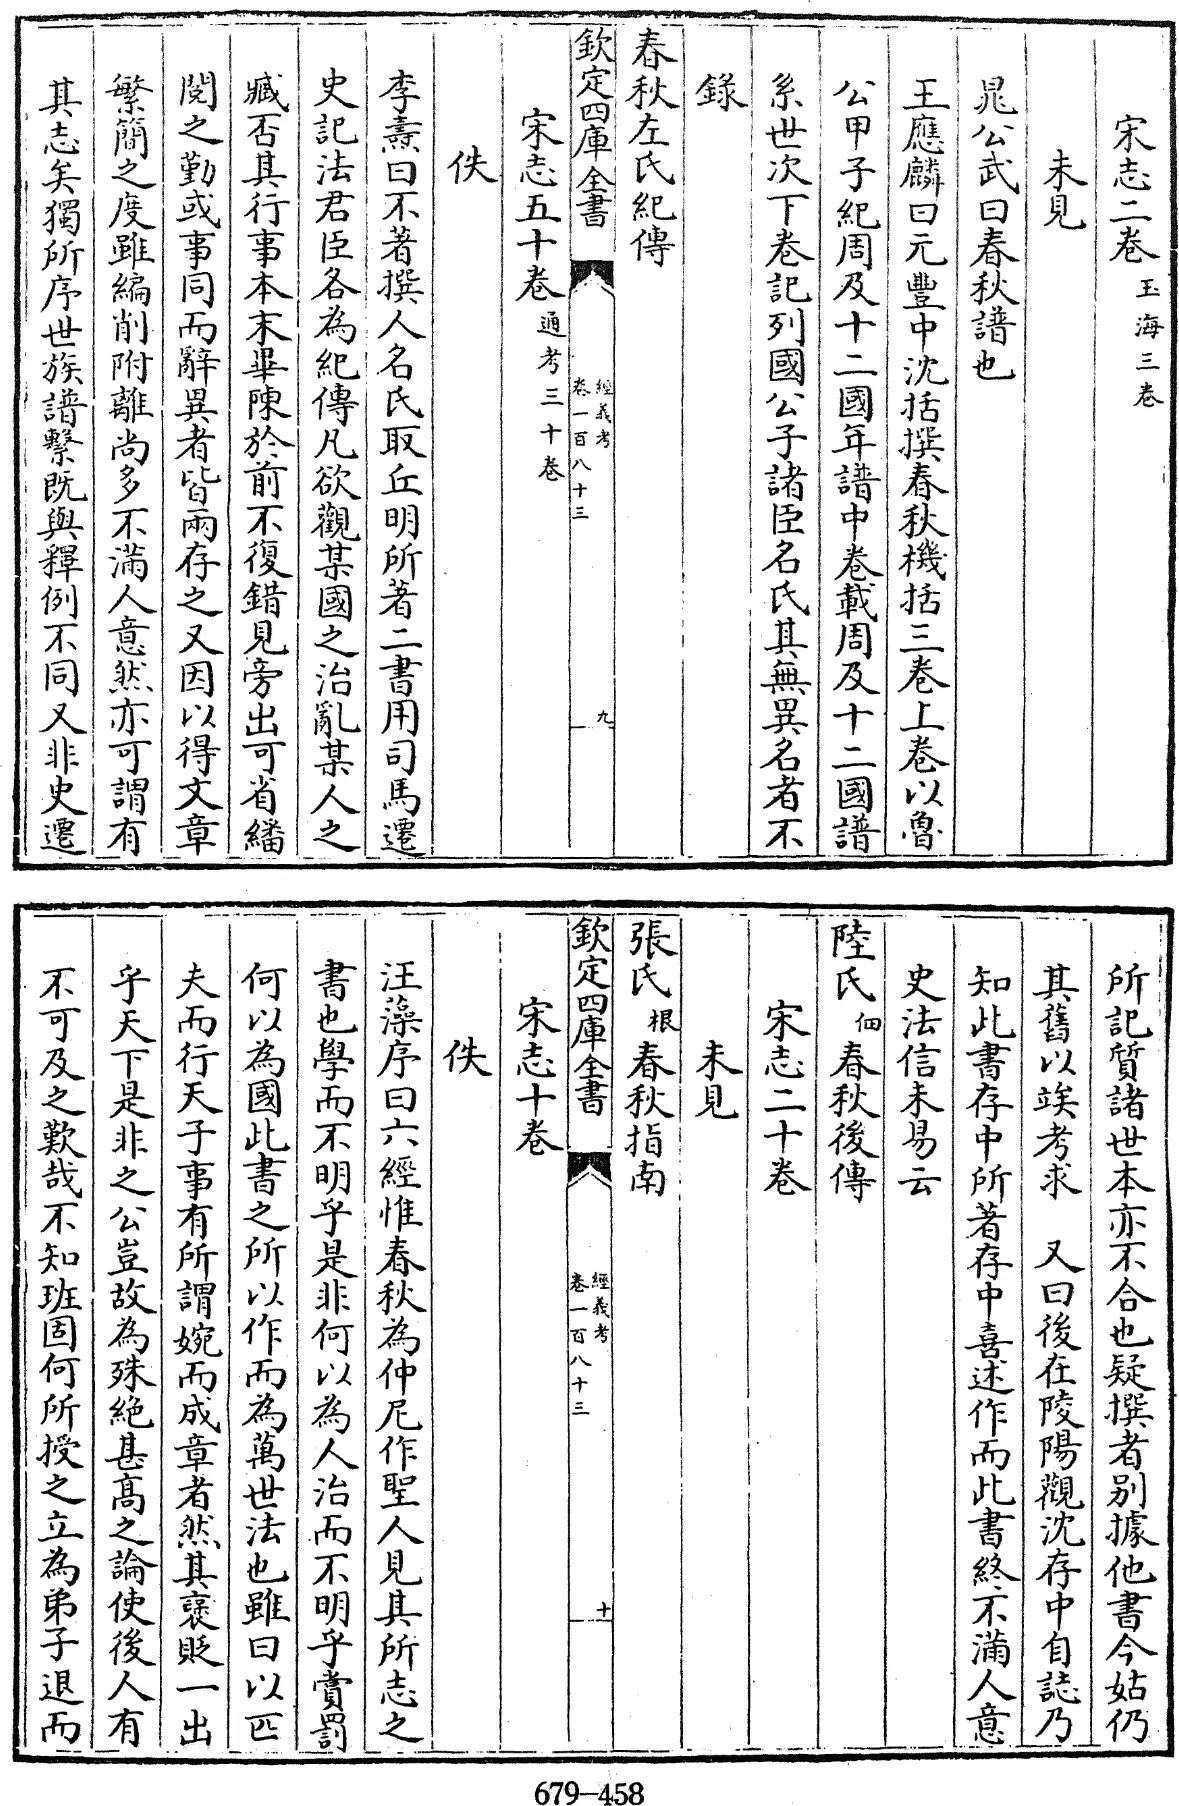 宋志二卷玉海三卷
未見
晁公武曰春秋譜也
王應麟曰元豐中沈括撰春秋機括三卷上卷以魯
公甲子紀周及十二國年譜中卷載周及十二國譜
系世次下卷記列國公子諸臣名氏其無異名者不
錄
春秋左氏紀傳
欽定四庫全書
經義考
卷一百八十三
九
宋志五十卷通考三十卷
佚
李燾曰不著撰人名氏取丘明所著二書用司馬遷
史記法君臣各為紀傳凡欲觀某國之治亂某人之
臧否其行事本末畢陳於前不復錯見旁出可省繙
閱之勤或事同而辭異者皆兩存之又因以得文章
繁簡之度雖編削附離尚多不滿人意然亦可謂有
其志矣獨所序世族譜繫既與釋例不同又非史遷
所記質諸世本亦不合也疑撰者别據他書今姑仍
其舊以竢考求　又曰後在陵陽觀沈存中自誌乃
知此書存中所著存中喜述作而此書終不滿人意
史法信未易云
陸氏佃春秋後傳
宋志二十卷
未見
張氏根春秋指南
欽定四庫全書
經義考
卷一百八十三
十
宋志十卷
佚
汪藻序曰六經惟春秋為仲尼作聖人見其所志之
書也學而不明乎是非何以為人治而不明乎賞罰
何以為國此書之所以作而為萬世法也雖曰以匹
夫而行天子事有所謂婉而成章者然其襃貶一出
乎天下是非之公豈故為殊絶甚髙之論使後人有
不可及之歎哉不知班固何所授之立為弟子退而
679—458